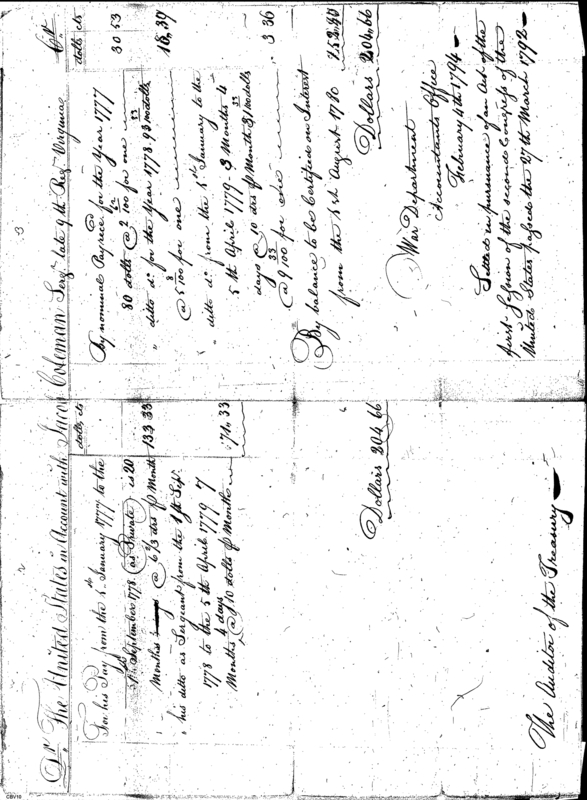 Dr. The United States in Account with Jacob Coleman Sergt. late 9th Regt. Virginia Cr.
dolls. cts
For his Pay from the 5th January 1777 to the
1st September 1778 (as Private) is 20
Months @ 6 2/3 drs ⅌ Month 133 33
" his ditto as Sergeant from the 1st Sept.
1778 to the 5th April 1779 7
Months 4 days @ 10 dolls ⅌ Month 71.33
Dollars 204.66
The Auditor of the Treasury
dolls cts
By nominal Pay recd for the Year 1777
80 dolls @ 2 62/100 for one 30 53
" ditto do for the Year 1778 93 33 dolls
@ 5 8/100 for one 18,37
" ditto do from the 5th January to the
5th April 1779. 3 Months 4
days @ 10 drs ⅌ Month 31 33 dolls
@ 9 33/100 for one 3 36
By balance to be Certificate on Interest
from the 1st August 1780 252.40
Dollars 204,66
War Department
Accountants Office
February 4th 1794
Settled in pursuance of an Act of the
first Session of the second Congress of the
United States passed the 27th March 1792
CBV10